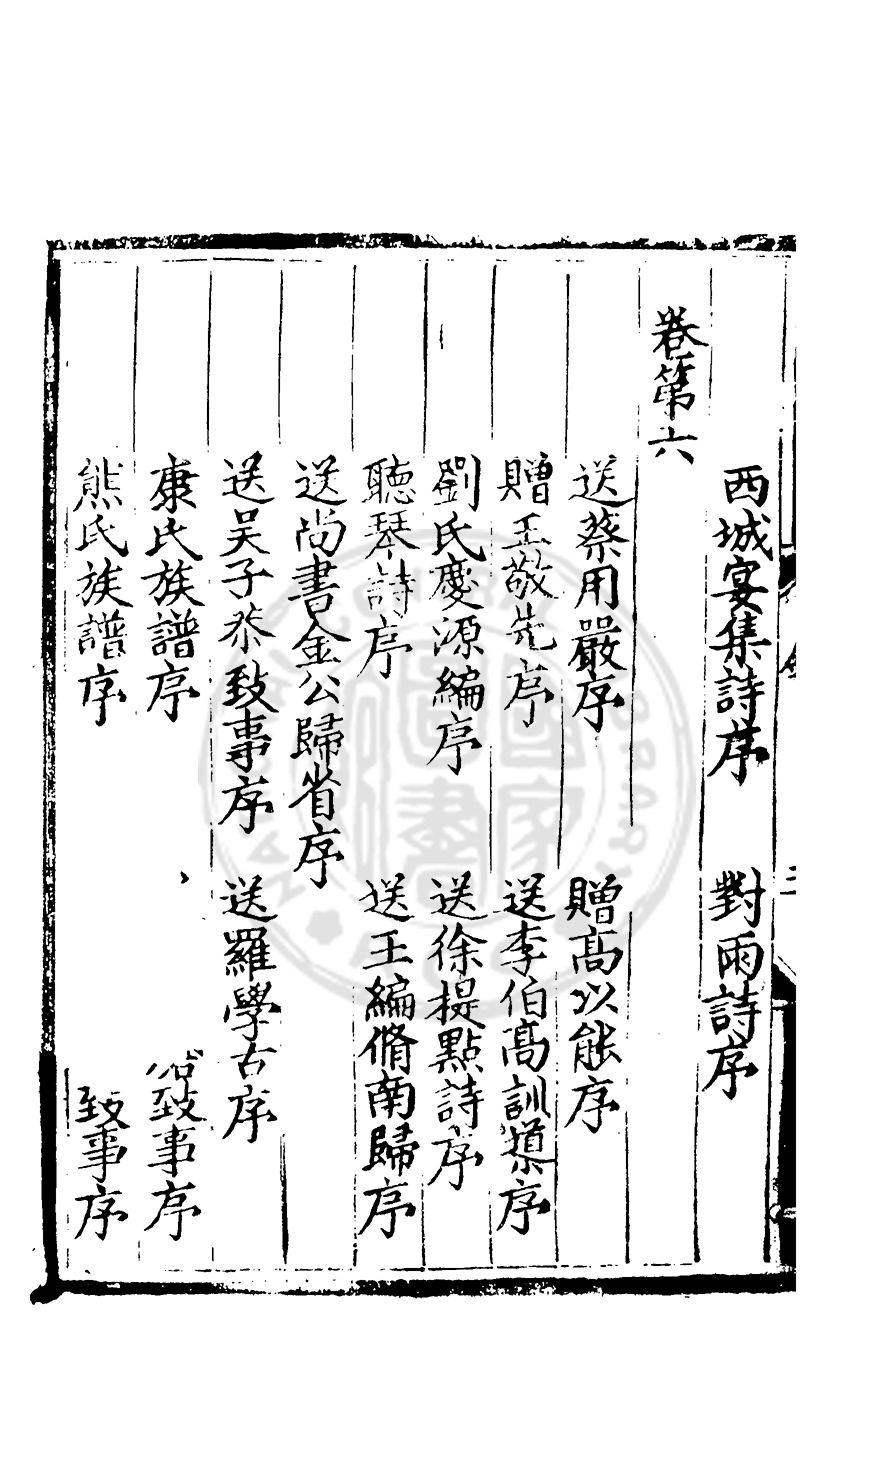 西城宴集詩序　對雨詩序
卷第六
送蔡用嚴序　贈高以能序
贈王敬先序　送李伯高訓導序
劉氏慶源編序　送徐提點詩序
聽琴詩序　送王編脩南歸序
送尚書金公歸省序
送吴子恭致事序　送羅學古序
康氏族譜序　致事序
熊氏族譜序　致事序